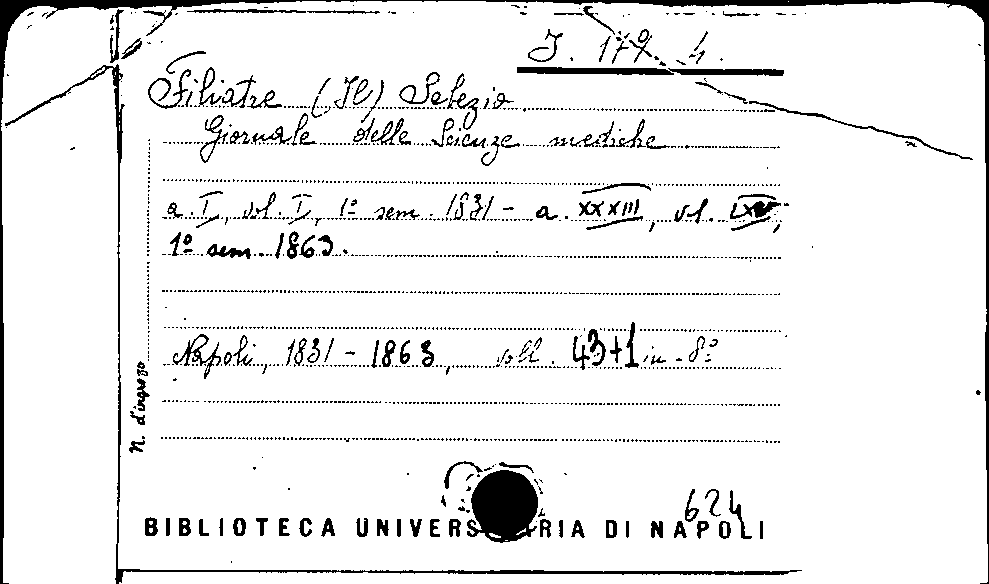 J. 179 4.
Filiatre (Il) Sebezio
Giornale delle Scienze mediche
a. I, vol. I, 1º sem. 1831 - a. XXXIII, vol. LXV,
1º sem. 1863.
Napoli, 1831 - 1863, voll. 43+1 in-8º
N. d'ingresso
624
BIBLIOTECA UNIVERS RIA DI NAPOLI